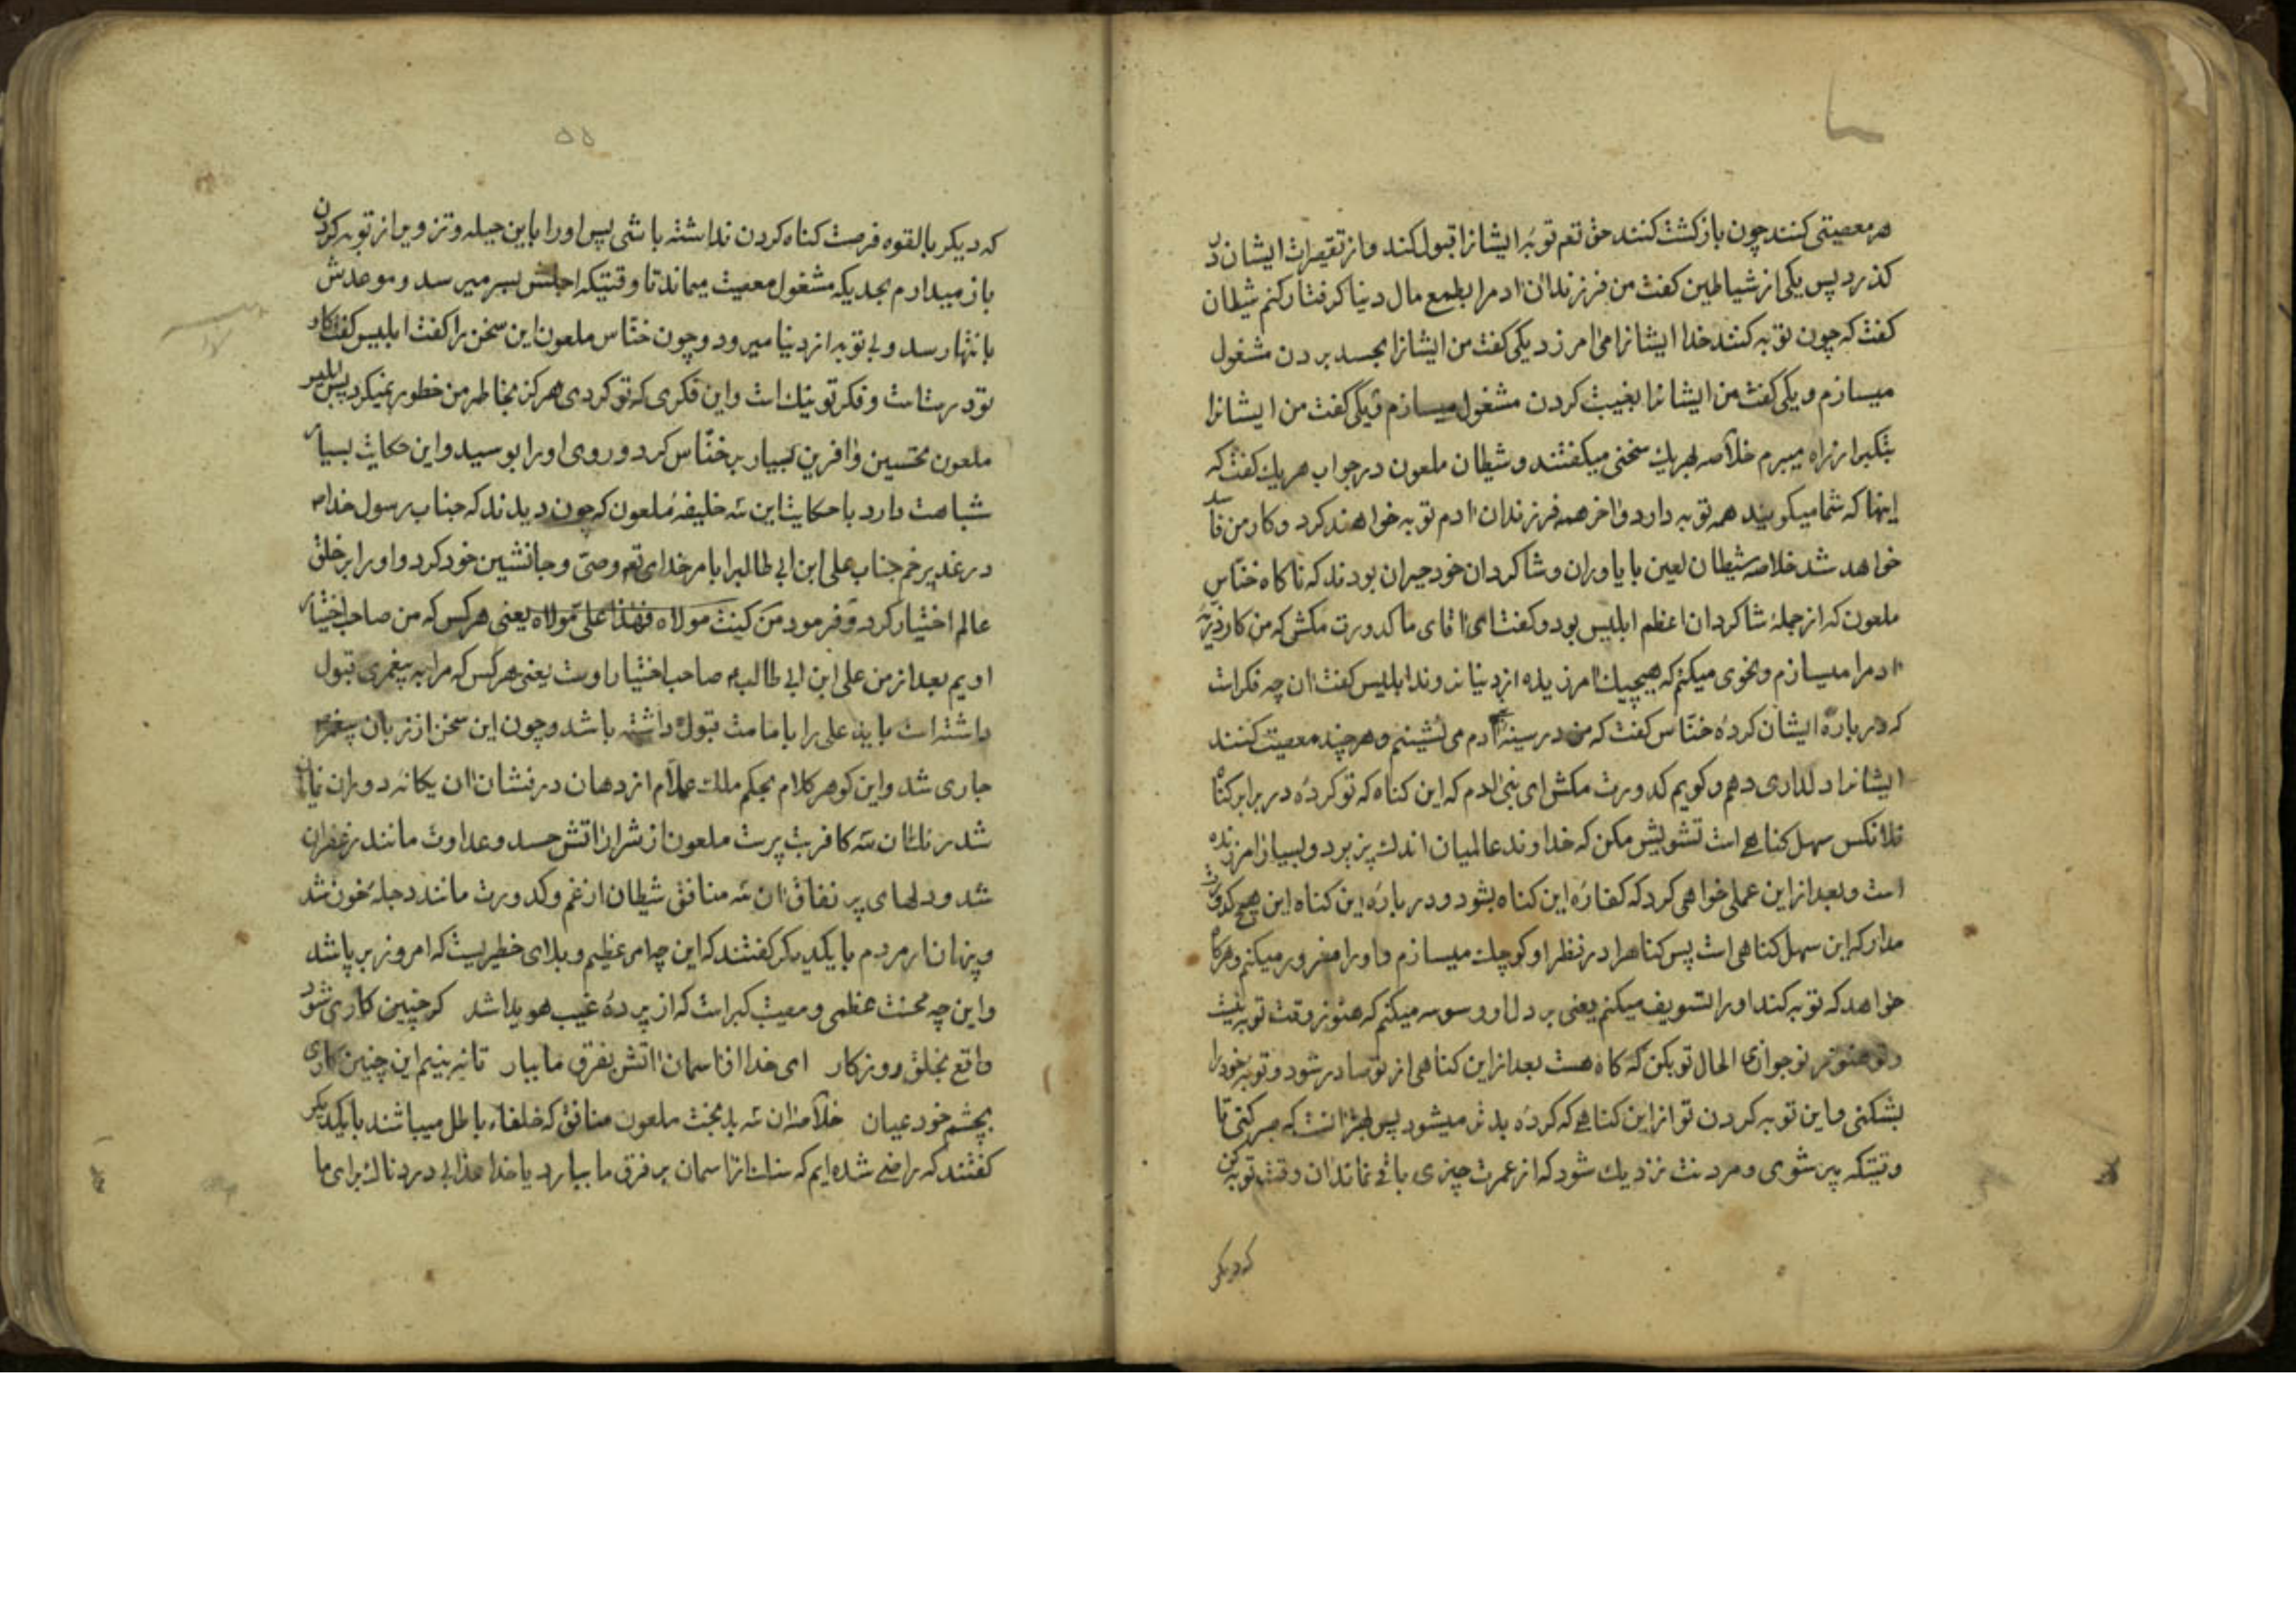 هر معصیتی کنند چون بازکشت کنند حق تعم توبهٔ ایشانرا قبول کند و از تقصیرات ایشان در
کذرد پس یکی از شیاطین کفت من فرزندان ادم را بطمع مال دنیا کرفتار کنم شیطان
کفت که چون توبه کنند خدا ایشانرا می امرزد یکی کفت من ایشانرا بحسد بردن مشغول
میسازم و یکی کفت من ایشانرا بغیبت کردن مشغول میسازم و یکی کفت من ایشانرا
بتکبر از راه میبرم خلاصه هریك سخنی میکفتند و شیطان ملعون در جواب هریك کفت که
اینها که شما میکویید همه توبه دارد و اخر همه فرزندان ادم توبه خواهند کرد و کار من فاسد
خواهد شد خلاصه شیطان لعین با یاوران و شاکردان خود حیران بودند که ناکاه خنّاس
ملعون که از جملهٔ شاکردان اعظم ابلیس بود و کفت ای اقای ما کدورت مکش که من کار ذریهٔ
ادم را میسازم و نحوی میکنم که هیچیك امرزیده از دنیا نروند ابلیس کفت ان چه فکر است
که در بارهٔ ایشان کردهٔ خنّاس کفت که من در سینهٔ ادم می نشینم و هر چند معصیت کنند
ایشانرا دلداری دهم و کویم کدورت مکش ای بنی ادم که این کناه که تو کردهٔ در برابر کناه
فلانکس سهل کناهے است تشویش مکن که خداوند عالمیان اندك پزیرد و بسیار امرزنده
است و بعد از این عملی خواهی کرد که کفارهٔ این کناه بشود و در بارهٔ این کناه این هیچ کدورت
مدار که این سهل کناهی است پس کناهرا در نظر او کوچك میسازم و اورا مغرور میکنم و هرکاه
خواهد که توبه کند اورا تسویف میکنم یعنی بر دل او وسوسه میکنم که هنوز وقت توبه نیست
و تو هنوز نوجوانی الحال توبه کن که کاه هست بعد از این کناهی از تو صادر شود و توبهٔ خودرا
بشکنی و این توبه کردن تو از این کناهے که کردهٔ بدتر میشود پس بهتر انست که صبر کنی تا
وقتیکه پیر شوی و مردنت نزدیك شود که از عمرت چیزی باقے نماند ان وقت توبه کن
که دیکر
۵۵
که دیکر بالقوه فرصت کناه کردن نداشته باشی پس اورا باین حیله و تزویر از توبه کردن
باز میدارم بحدیکه مشغول معصیت میماند تا وقتیکه اجلش بسر میرسد و موعدش
بانتها رسد و بی توبه از دنیا میرود و چون خنّاس ملعون این سخن را کفت ابلیس کفت کار
تو درست است و فکر تو نیك است و این فکری که تو کردی هرکز بخاطر من خطور نمیکرد پس ابلیس
ملعون تحسین و افرین بسیار بر خنّاس کرد و روی اورا بوسید و این حکایت بسیار
شباهت دارد با حکایت این سه خلیفهٔ ملعون که چون دیدند که جناب رسول خدا ص
در غدیر خم جناب علی ابن ابی طالبرا بامر خدای تعم وصیّ و جانشین خود کرد و اورا بر خلق
عالم اختیار کرد و فرمود مَن کینت مولاه فهٰذا علی مَولاه یعنی هرکس که من صاحب اختیار
اویم بعد از من علی ابن ابی طالب صاحب اختیار اوست یعنی هرکس که مرا به پیغمری قبول
داشته است باید علی را بامامت قبول داشته باشد و چون این سخن از زبان پیغمبر
جاری شد و این کوهر کلام بحکم ملك علّام از دهان درفشان ان یکانهٔ دوران نمایان
شد رنك ان سه کافر بت پرست ملعون از شرار اتش حسد و عداوت مانند زعفران
شد و دلهای پر نفاق ان سه منافق شیطان از غم و کدورت مانند دجلهٔ خون شد
و پنهان از مردم با یکدیکر کفتند که این چه امر عظیم و بلای خطیریست که امروز بر پا شد
و این چه محنت عظمی و مصیبت کبراست که از پردهٔ غیب هویدا شد که چنین کاری شود
واقع بخلق روزکار ای خدا از اسمان اتش بفرق ما ببار تا نبینیم این چنین کاری
بچشم خود عیان خلاصه ان سه بدبخت ملعون منافق که خلفاء باطل میباشند با یکدیکر
کفتند که راضے شده ایم که سنك از اسمان بر فرق ما ببارد یا خدا عذابی دردناك برای ما